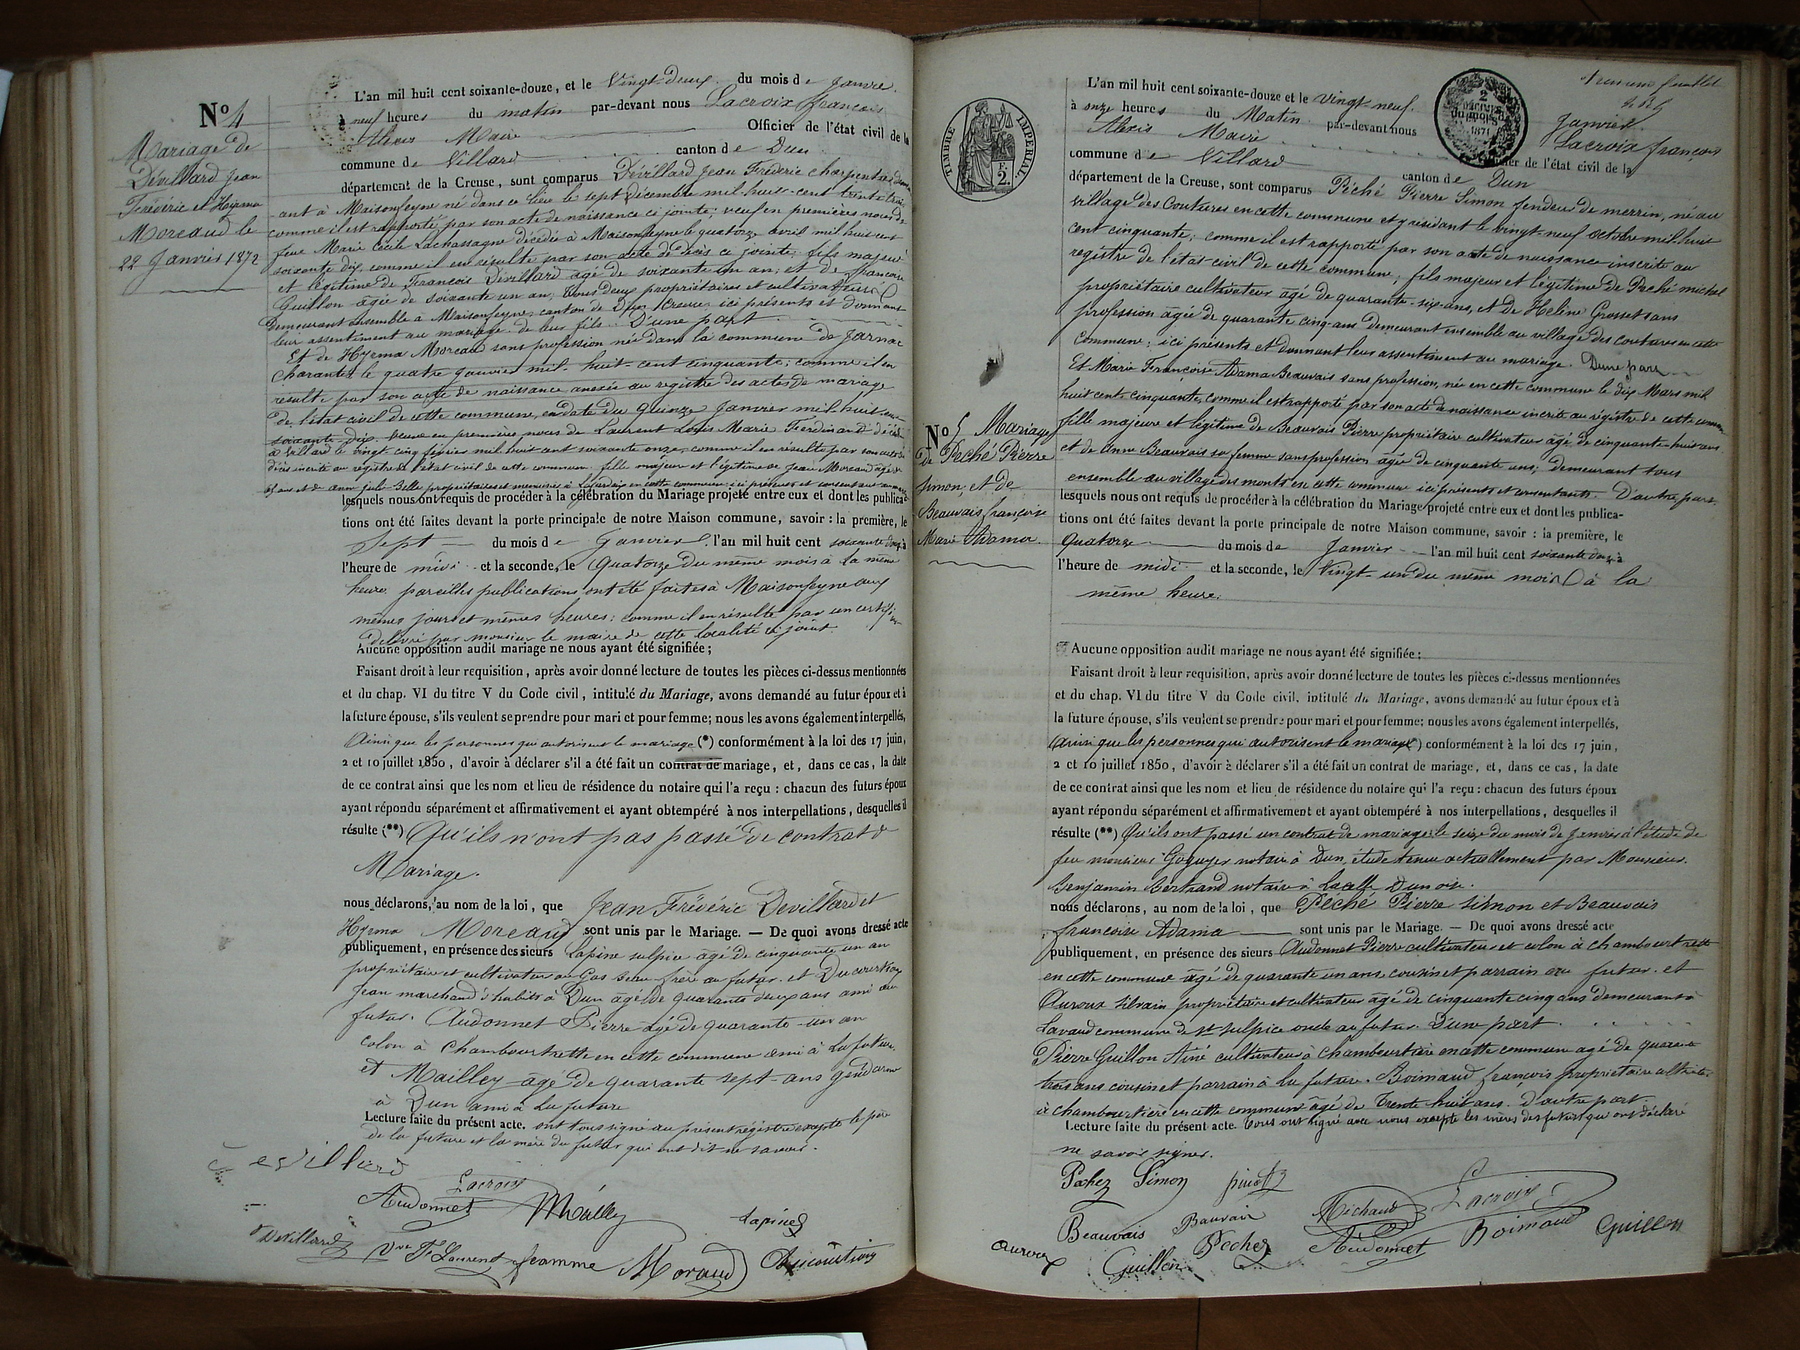 No 4
Mariage de
Dévillard Jean
Frédéric et Hyrma
Moreaud le
22 Janvier 1872
L'an mil huit cent soixante-douze, et le Vingt-deux du mois de Janvier
à neuf heures du matin par-devant nous Lacroix François
Alexis Maire Officier de l'état civil de la
commune de Villard canton de Dun
département de la Creuse, sont comparus Dévillard Jean Frédéric charpentier demeur
ant à Maisonfeyne né dans ce lieu le sept Décembre mil huit-cent trente
comme il est rapporté par son acte de naissance ci jointe; veuf en premières noces de
feue Marie Cécile Lachassagne décédée à Maisonfeyne le quatorze avril mil huit cent
soixante dix comme il en résulte par son acte de décès ci jointe; fils majeur
et légitime de François Dévillard âgé de soixante un an, et de Françoise
Guillon âgée de soixante un an, tous deux propriétaires et cultivateurs
demeurant ensemble à Maisonfeyne, canton de Dun, Creuse, ici présents et donnant
leur assentiment au mariage de leur fils. D'une part
Et de Hyrma Moreaud sans profession née dans la commune de Jarnac
Charante le quatre Janvier mil huit-cent cinquante; comme il en
résulte par son acte de naissance anexée au registre des actes de mariage
de l'état civil de cette commune, en date du quinze Janvier mil huit cent
soixante dix, veuve en première noces de Laurent Louis Marie Ferdinand décédé
à Villard le vingt cinq février mil huit cent soixante onze, comme il en résulte par son acte de
décès inscrite au registre de l'état civil de cette commune, fille majeur et légitime de Jean Moreaud âgé de
ans et de Anne Julie Belle propriétaires et en cette commune ici présents et
lesquels nous ont requis de procéder à la célébration du Mariage projeté entre eux et dont les publica-
tions ont été faites devant la porte principale de notre Maison commune, savoir : la première, le
Sept du mois de Janvier l'an mil huit cent soixante douze à
l'heure de midi et la seconde, le Quatorze du même mois à la même
heure pareilles publications ont été faites à Maisonfeyne aux
mêmes jours et mêmes heures; comme il en résulte par un certifi
délivré par monsieur le maire de cette localité ci joint.
Aucune opposition audit mariage ne nous ayant été signifiée;
Faisant droit à leur requisition, après avoir donné lecture de toutes les pièces ci-dessus mentionnées
et du chap. VI du titre V du Code civil, intitulé du Mariage, avons demandé au futur époux et à
la future épouse, s'ils veulent se prendre pour mari et pour femme; nous les avons également interpellés,
Ainsi que les personnes qui autorisent le mariage (*) conformément à la loi des 17 juin,
2 et 10 juillet 1850, d'avoir à déclarer s'il a été fait un contrat de mariage, et, dans ce cas, la date
de ce contrat ainsi que les nom et lieu de résidence du notaire qui l'a reçu : chacun des futurs époux
ayant répondu séparément et affirmativement et ayant obtempéré à nos interpellations, desquelles il
résulte (**) Qu'ils n'ont pas passé de contrat de
Mariage.
nous déclarons, au nom de la loi, que Jean Frédéric Devillard et
Hyrma Moreaud sont unis par le Mariage. — De quoi avons dressé acte
publiquement, en présence des sieurs Lapine sulpice âgé de cinquante un an
propriétaire et cultivateur au beau frère au futur. et Ducourtioux
Jean marchand d'habits à Dun âgé de quarante deux ans ami du
futur. Audonnet Pierre âgé de quarante-un an
colon à Chambourtrette en cette commune ami à la future
et Mailley âgé de quarante sept-ans gendarme
à Dun ami à la future
Lecture faite du présent acte. ont tous signé au présent régistre excepté le père
de la future et la mère du futur qui ont dit ne savoir.
Devillard
Lacroix
Audonnet Mailley Lapine
Devillard Vve F. Laurent femme Moraud Ducourtioux
TIMBRE IMPÉRIAL
2
2 DÉCIMES
1871
Janvier
L'an mil huit cent soixante-douze et le vingt-neuf
à onze heures du Matin par-devant nous Lacroix françois
Alexis Maire Officier de l'état civil de la
commune de Villard canton de Dun
département de la Creuse, sont comparus Péché Pierre Simon fendeur de merrin, né au
village des Coutures en cette commune et y résidant le vingt-neuf octobre mil huit
cent cinquante; comme il est rapporté par son acte de naissance inscrite au
registre de l'état-civil de cette commune, fils majeur et légitime de Péché michel
propriétaire cultivateur âgé de quarante-six-ans, et de Helène Grosset sans
profession âgée de quarante cinq-ans demeurant ensemble au village des coutures en cette
commune; ici présents et donnant leur assentiment au mariage. D'une part
Et Marie Françoise Adama Beauvais sans profession, née en cette commune le dix Mars mil
huit cent cinquante, comme il est rapporté par son acte de naissance incrite au régistre de cette commune
fille majeure et légitime de Beauvais Pierre propriétaire cultivateur âgé de cinquante huit ans
et de Anne Beauvais sa femme sans profession âgée de cinquante ans; demeurant tous
ensemble au village des monts en cette commune ici présents et consentants. D'autre part
No 5 Mariage
de Péché Pierre
Simon, et de
Beauvais françoise
Marie Adama.
lesquels nous ont requis de procéder à la célébration du Mariage projeté entre eux et dont les publica-
tions ont été faites devant la porte principale de notre Maison commune, savoir : la première, le
Quatorze du mois de Janvier l'an mil huit cent soixante douze à
l'heure de midi et la seconde, le Vingt-un du même mois à la
même heure.
Aucune opposition audit mariage ne nous ayant été signifiée;
Faisant droit à leur requisition, après avoir donné lecture de toutes les pièces ci-dessus mentionnées
et du chap. VI du titre V du Code civil, intitulé du Mariage, avons demandé au futur époux et à
la future épouse, s'ils veulent se prendre pour mari et pour femme; nous les avons également interpellés,
ainsi que les personnes qui autorisent le mariage (*) conformément à la loi des 17 juin,
2 et 10 juillet 1850, d'avoir à déclarer s'il a été fait un contrat de mariage, et, dans ce cas, la date
de ce contrat ainsi que les nom et lieu de résidence du notaire qui l'a reçu : chacun des futurs époux
ayant répondu séparément et affirmativement et ayant obtempéré à nos interpellations, desquelles il
résulte (**) Qu'ils ont passé un contrat de mariage le seize du mois de Janvier à l'étude de
feu monsieur Goguyer notaire à Dun, étude tenue actuellement par Monsieur
Benjamin Bertrand notaire à Lacelle Dunoise.
nous déclarons, au nom de la loi, que Péché Pierre Simon et Beauvais
françoise Adama sont unis par le Mariage. — De quoi avons dressé acte
publiquement, en présence des sieurs Audonnet Pierre cultivateur et colon à chambourtrette
en cette commune âgé de quarante un ans cousin et parrain au futur. et
Auroux Silvain propriétaire et cultivateur âgé de cinquante cinq ans demeurant à
Lavaud commune de St Sulpice oncle au futur. D'une part.
Pierre Guillon Ainé cultivateur à Chambourtière en cette commune âgé de quarante
trois ans cousin et parrain à la future. Boimaud françois propriétaire cultivateur
à chambourtière en cette commune âgé de trente huit ans. d'autre part
Lecture faite du présent acte. Tous ont signé avec nous excepté les mères des futurs qui ont déclaré
ne savoir signer.
Pechez Simon
Michaud Lacroix
Beauvais Bauvais
Auroux Guillon Pechez Audonnet Boimaud Guillon